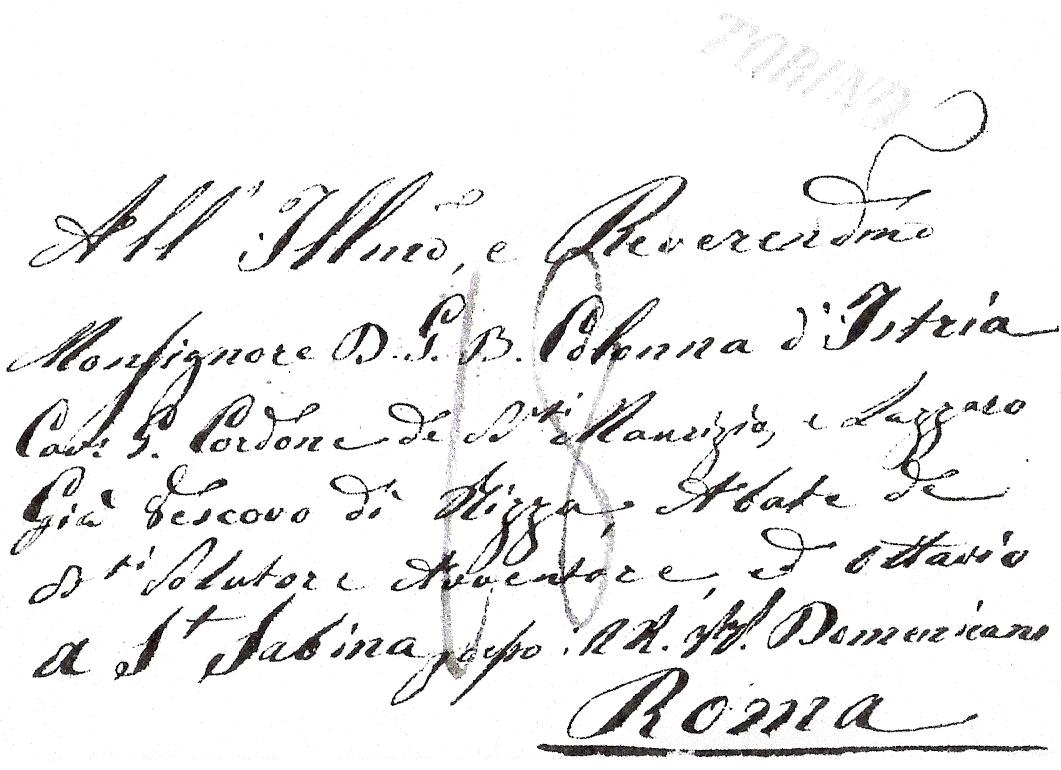 TORINO
All' Illmo, e Reverendmo
Monsignore D. G. B. Colonna d'Istria
Cav. G. Cordone de Sti Maurizio, e Lazzaro
Già Vescovo di Nizza, Abate de
Sti Solutore Avventore, ed Ottavio
a St Sabina presso i RR. PP. Domenicani
Roma
18